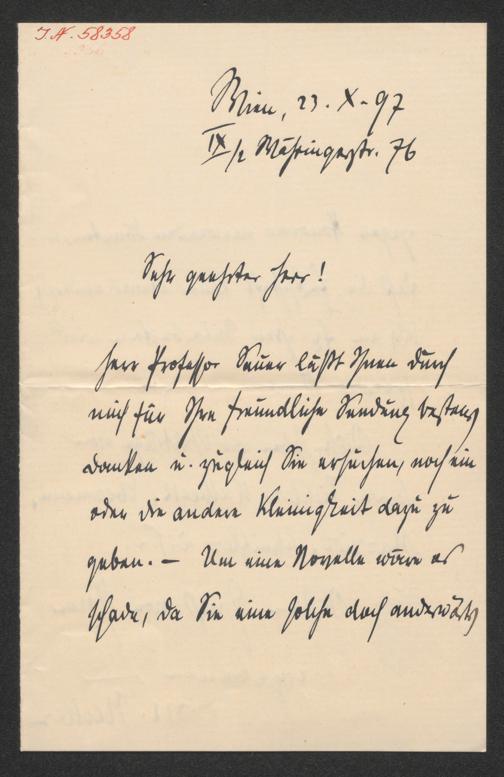 I.N. 58358
Wien, 23. X. 97
IX/2 Währingerstr. 76
Sehr geehrter Herr!
Herr Professor Sauer läßt Ihnen durch
mich für Ihre freundliche Sendung bestens
danken u. zugleich Sie ersuchen, noch ein
oder die andere Kleinigkeit dazu zu
geben. — Um eine Novelle wäre es
schade, da Sie eine solche doch anderwärts